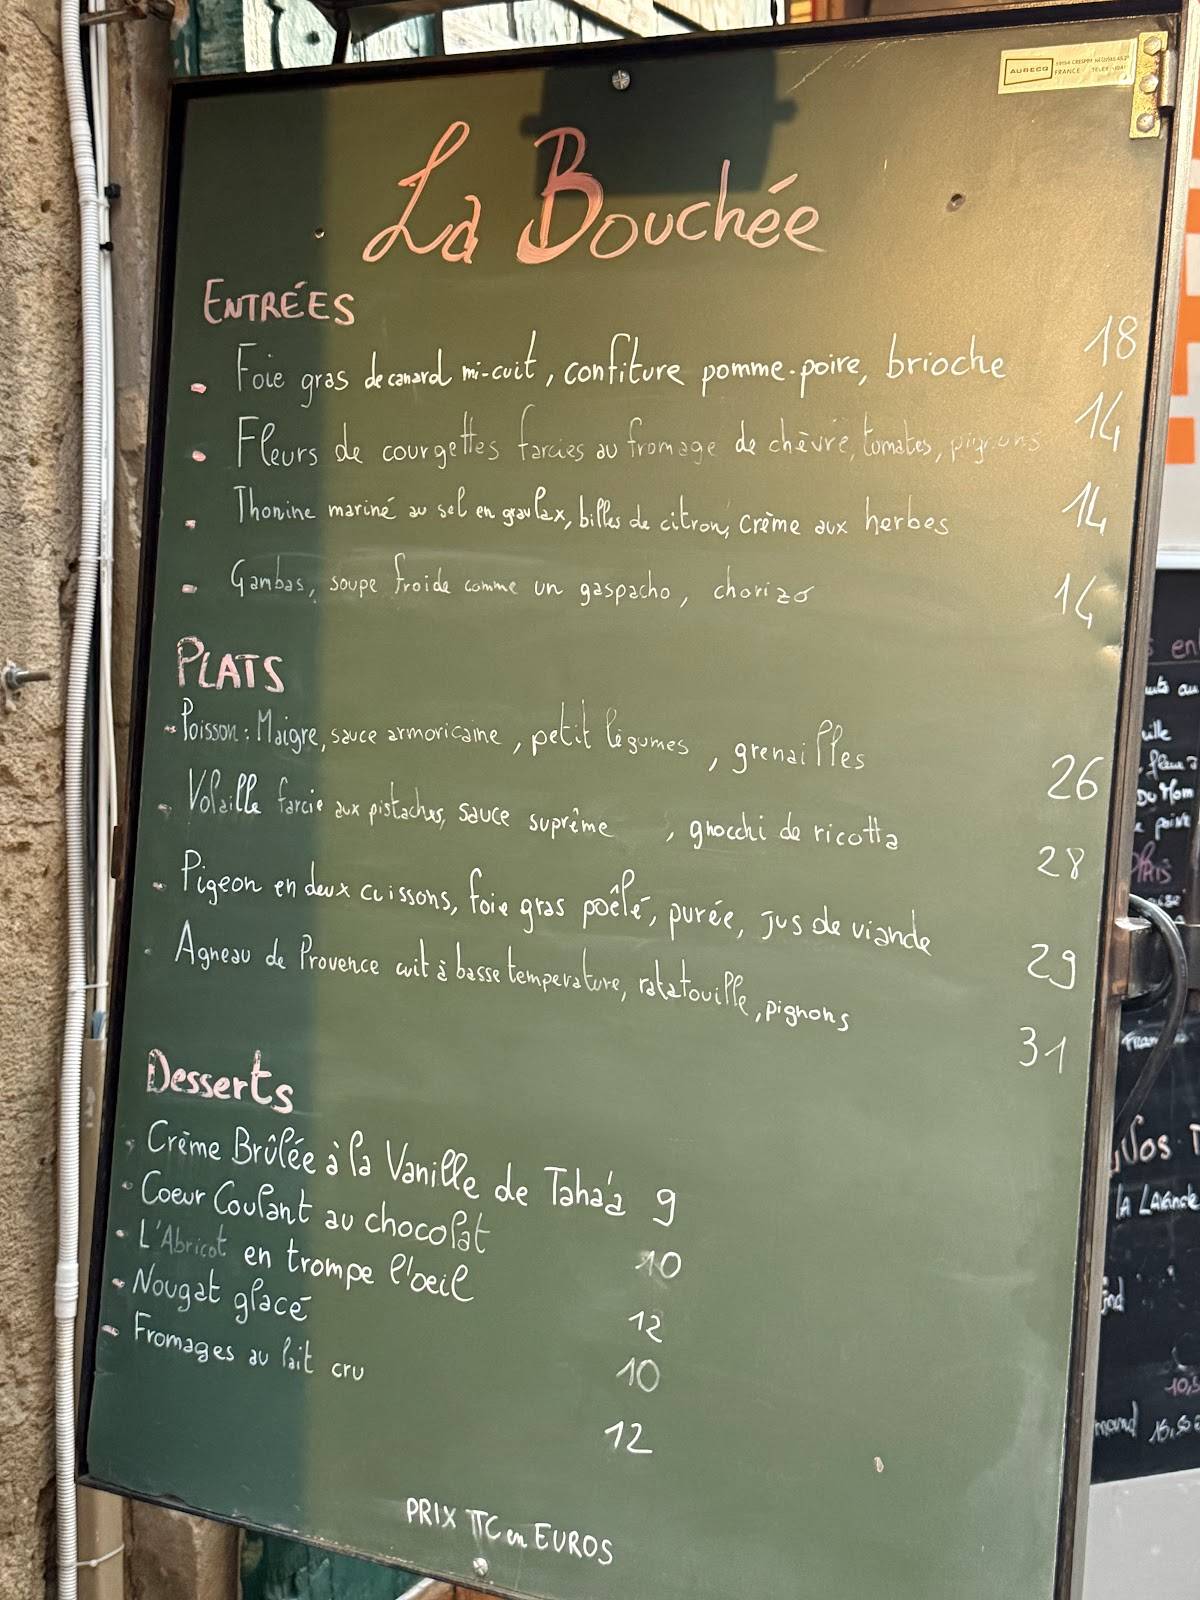 AUBECQ
FRANCE
La Bouchée
ENTRÉES
- Foie gras de canard mi-cuit, confiture pomme-poire, brioche 18
- Fleurs de courgettes farcies au fromage de chèvre, tomates, pignons 14
- Thonine mariné au sel en gravlax, billes de citron, crème aux herbes 14
- Gambas, soupe froide comme un gaspacho, chorizo 14
PLATS
- Poisson: Maigre, sauce armoricaine, petit légumes, grenailles 26
- Volaille farcie aux pistaches, sauce suprême, gnocchi de ricotta 28
- Pigeon en deux cuissons, foie gras poêlé, purée, jus de viande 29
- Agneau de Provence cuit à basse temperature, ratatouille, pignons 31
Desserts
- Crème Brûlée à la Vanille de Taha'a 9
- Coeur Coulant au chocolat 10
- L'Abricot en trompe l'oeil 12
- Nougat glacé 10
- Fromages au lait cru 12
PRIX TTC en EUROS